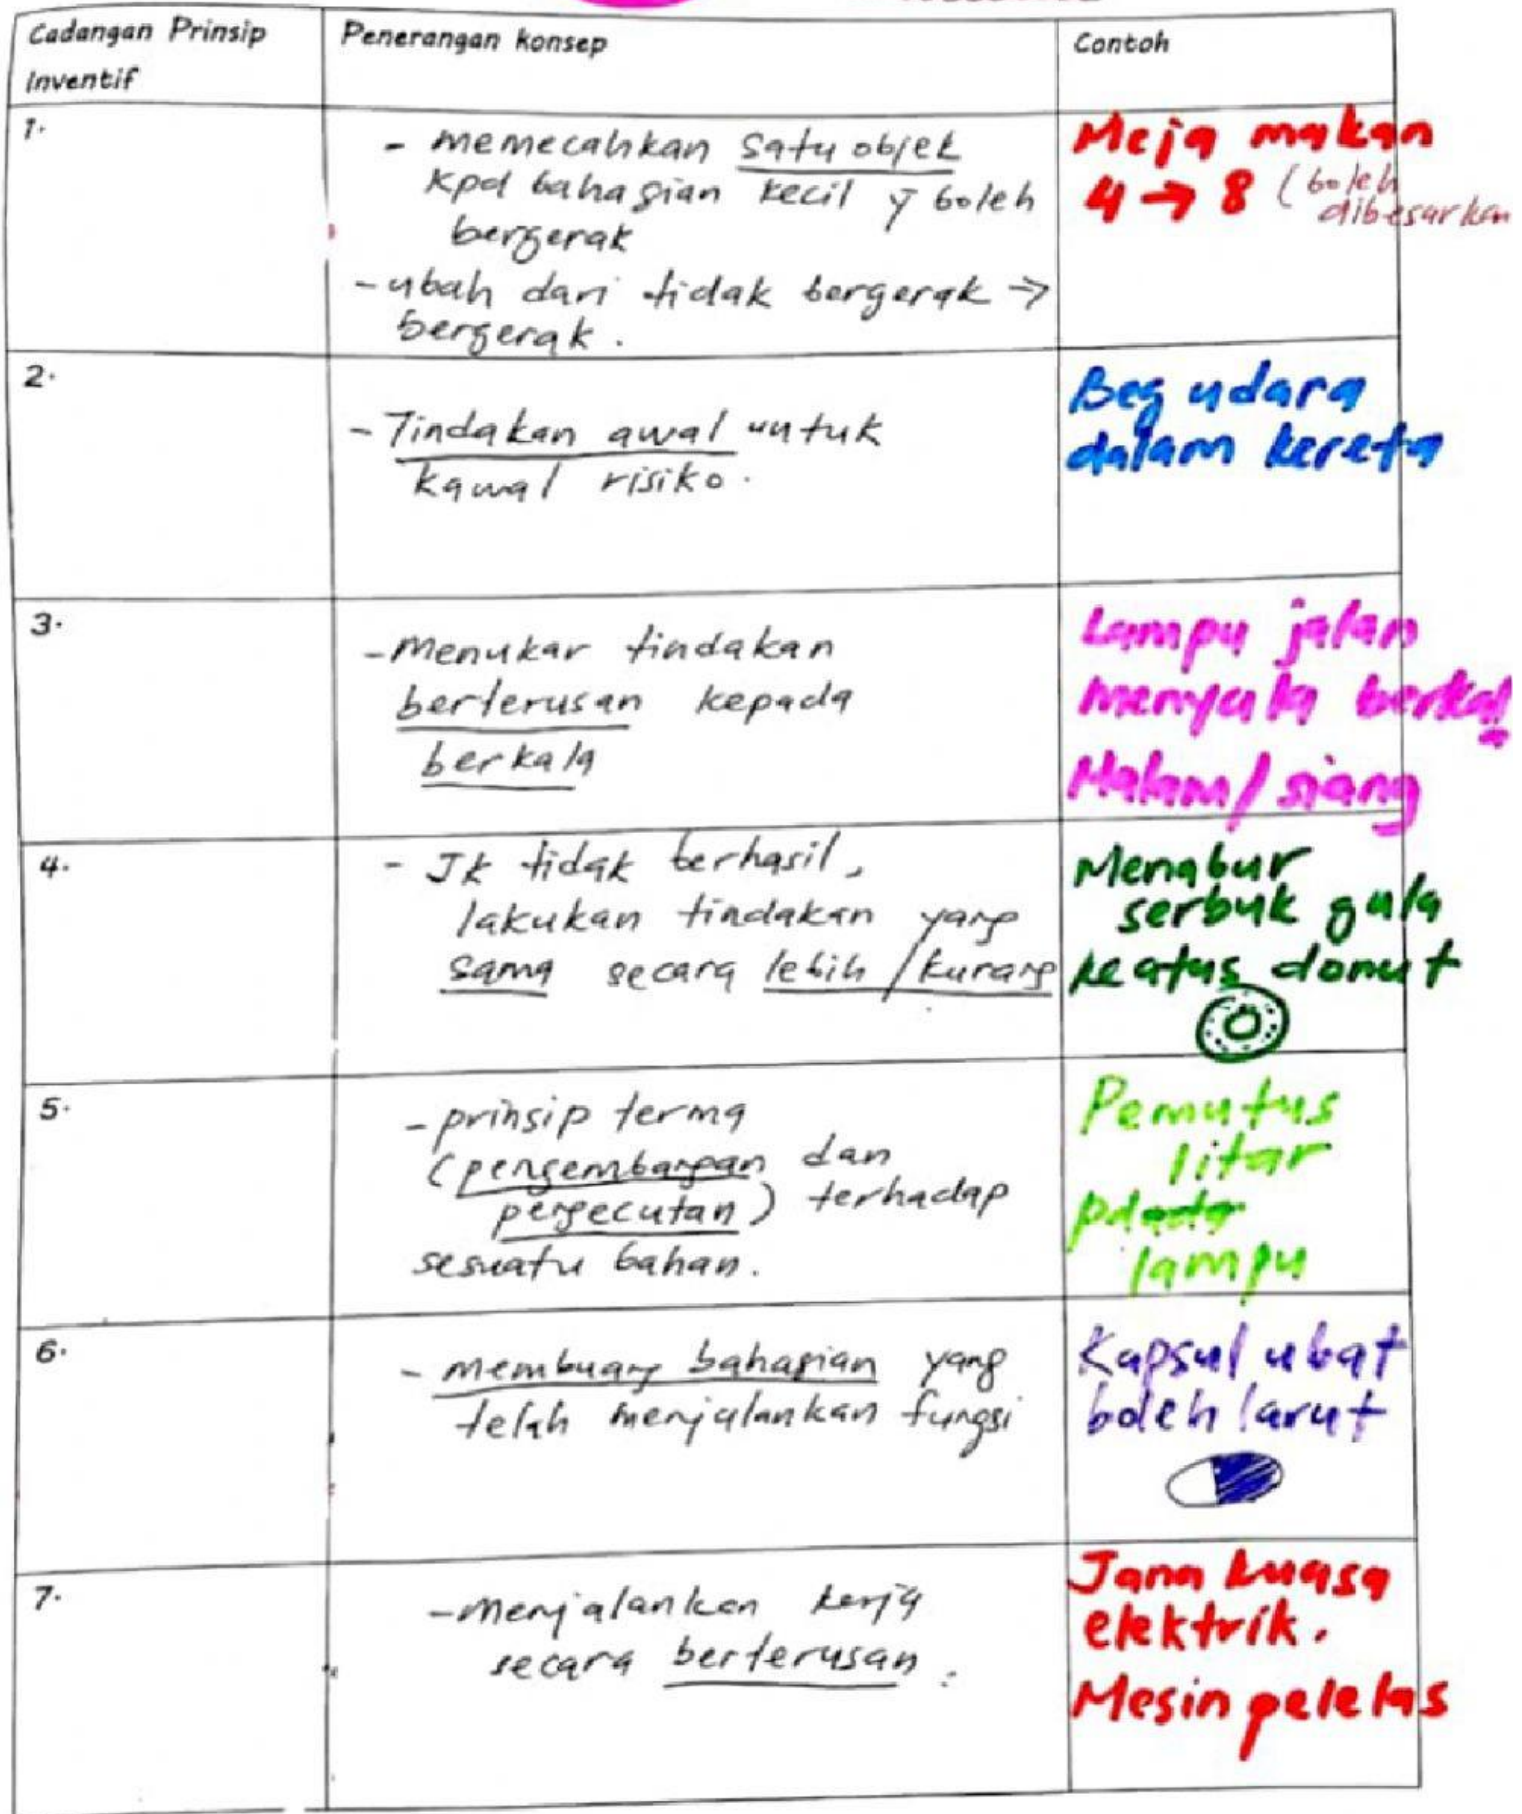 Cadangan Prinsip
Inventif
Penerangan konsep
Contoh
1.
- memecahkan satu objek
kpd bahagian kecil y boleh
bergerak
- ubah dari tidak bergerak →
bergerak.
Meja makan
4 → 8 (boleh
dibesarkan
2.
- Tindakan awal untuk
kawal risiko.
Beg udara
dalam kereta
3.
- Menukar tindakan
berterusan kepada
berkala
Lampu jalan
menyala berkal
a
Malam/siang
4.
- Jk tidak berhasil,
lakukan tindakan yang
sama secara lebih/kurang
Menabur
serbuk gula
keatas donut
5.
- prinsip terma
(pengembangan dan
pengecutan) terhadap
sesuatu bahan.
Pemutus
litar
lampu
6.
- membuang bahagian yang
telah menjalankan fungsi
Kapsul ubat
boleh larut
7.
- menjalankan kerja
secara berterusan.
Jana kuasa
elektrik.
Mesin pelelas